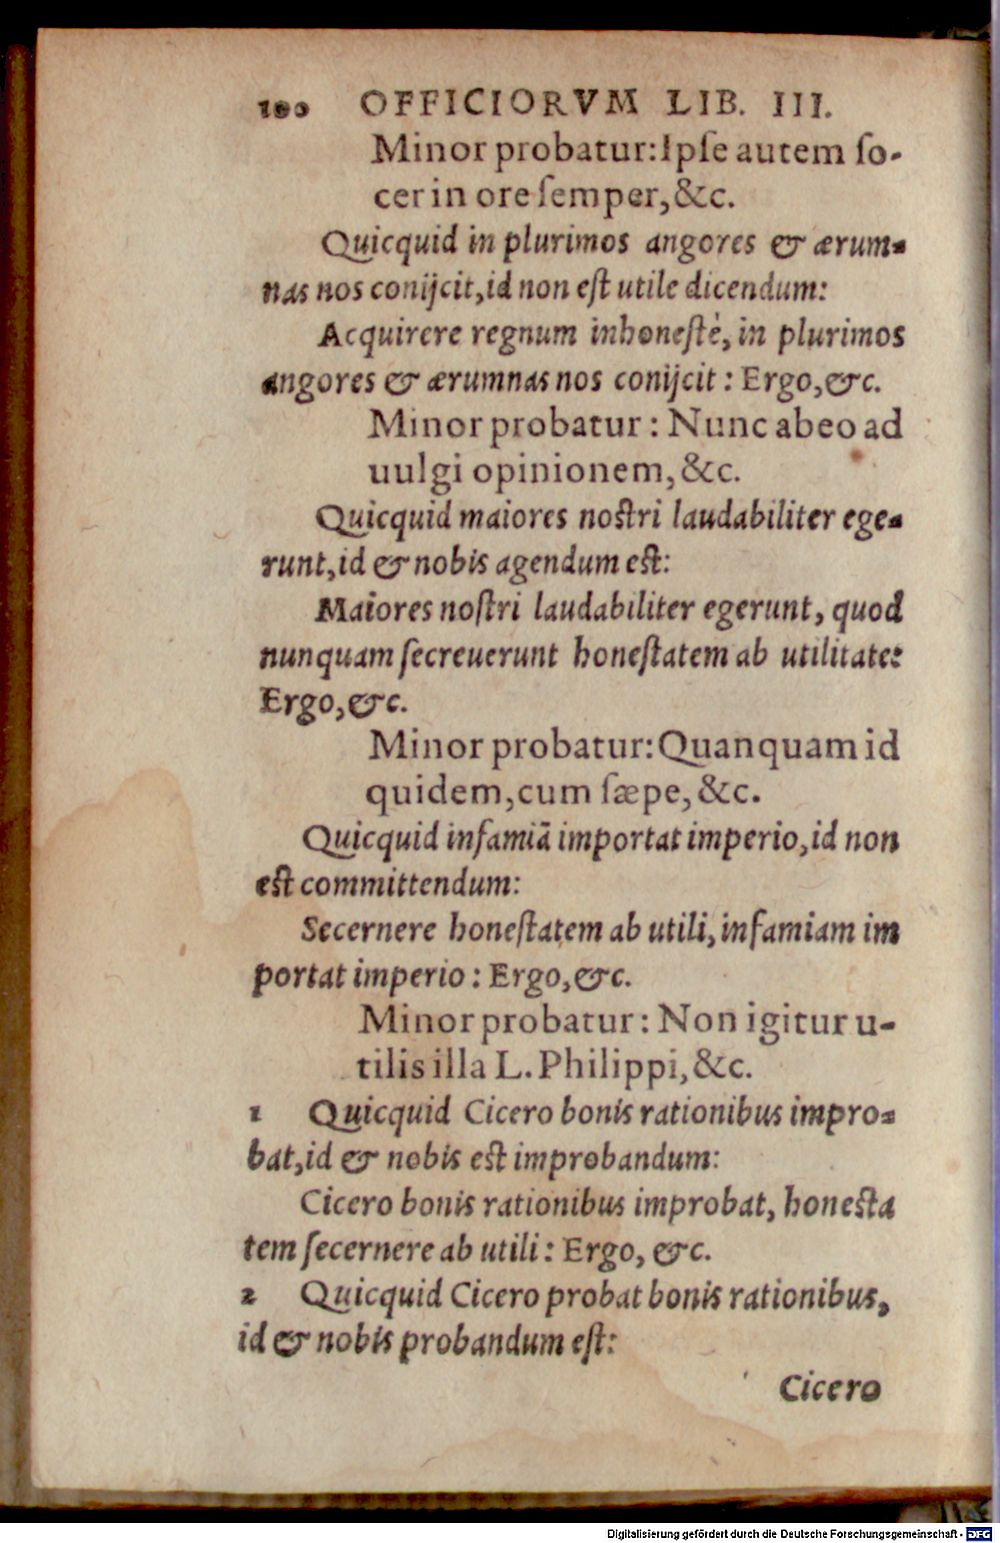 190 OFFICIORVM LIB. III.
Minor probatur:Ipſe autem ſo-
cer in ore ſemper,&c.
Quicquid in plurimos angores & ærum-
nas nos conijcit,id non eſt utile dicendum:
Acquirere regnum inhoneſtè, in plurimos
angores & ærumnas nos conijcit : Ergo,&c.
Minor probatur : Nunc abeo ad
uulgi opinionem,&c.
Quicquid maiores noſtri laudabiliter ege-
runt,id & nobis agendum eſt:
Maiores noſtri laudabiliter egerunt, quod
nunquam ſecreuerunt honeſtatem ab utilitate:
Ergo,&c.
Minor probatur:Quanquam id
quidem,cum ſæpe,&c.
Quicquid infamiā importat imperio,id non
eſt committendum:
Secernere honeſtatem ab utili,infamiam im
portat imperio : Ergo,&c.
Minor probatur : Non igitur u-
tilis illa L. Philippi,&c.
1 Quicquid Cicero bonis rationibus impro-
bat,id & nobis eſt improbandum:
Cicero bonis rationibus improbat, honeſta
tem ſecernere ab utili : Ergo, &c.
2 Quicquid Cicero probat bonis rationibus,
id & nobis probandum eſt:
Cicero
Digitalisierung gefördert durch die Deutsche Forschungsgemeinschaft - DFG